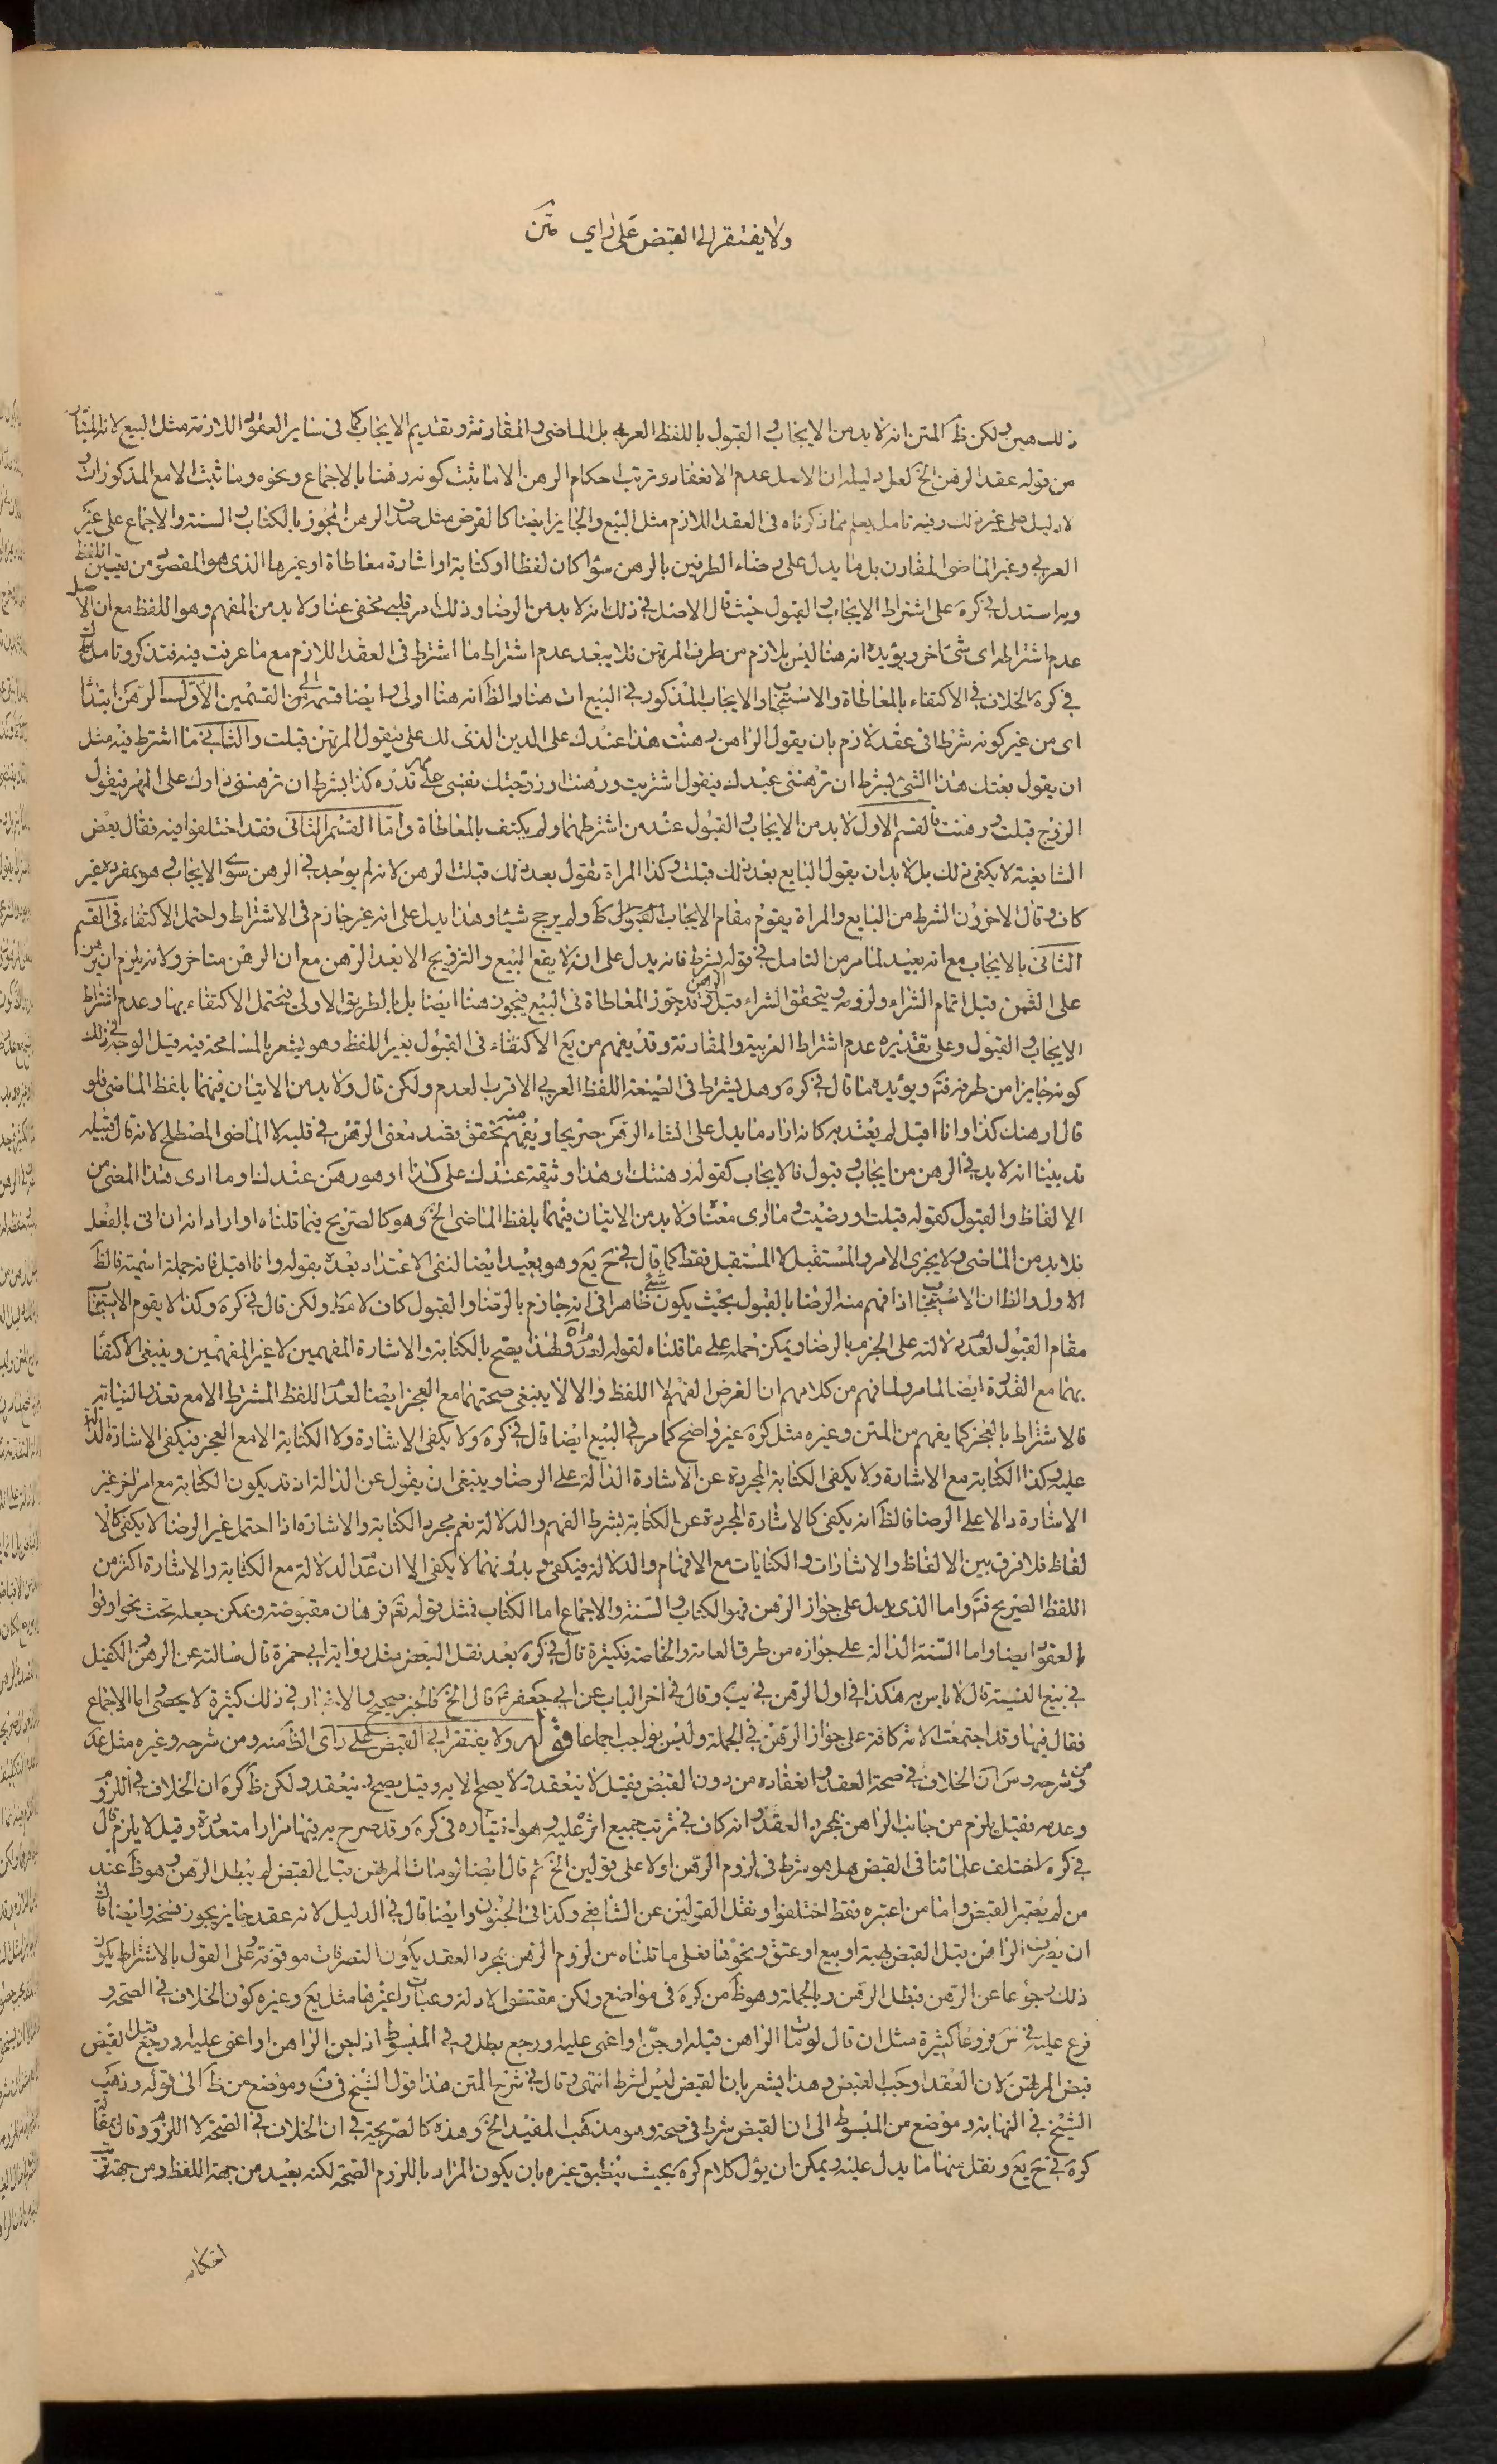 ولا يفتقر الى القبض على راي متن
ذلك هين ولكن ظ المتن انه لا بد من الايجاب والقبول باللفظ العربي بل الماضي والمقارنة وتقديم الايجاب كما في ساير العقود اللازمة مثل البيع لانه المتبادر
من قوله عقد الرهن الخ لعل دليله ان الاصل عدم الانعقاد وترتب احكام الرهن الا ما ثبت كونه رهنا بالاجماع ونحوه وما ثبت الا مع المذكورات
لا دليل على غير ذلك وفيه تامل يعلم مما ذكرناه في العقد اللازم مثل البيع والجايز ايضا كالقرض مثل صدق الرهن المجوز بالكتاب والسنة والاجماع على غير
العربي وغير الماضي المقارن بل ما يدل على رضاء الطرفين بالرهن سواء كان لفظا او كتابة او اشارة معاطاة او غيرها الذي هو المقصود من تعيين اللفظ
وبه استدل في كره على اشتراط الايجاب والقبول حيث قال الاصل في ذلك انه لا بد من الرضا وذلك امر قلبي مخفي عنا ولا بد من المفهم وهو اللفظ مع ان الاصل
عدم اشتراطه اي شئ اخر ويؤيده انه هنا ليس بلازم من طرف المرتهن فلا يبعد عدم اشتراط ما اشترط في العقد اللازم مع ما عرفت فيه فتذكر وتامل
في كره الخلاف في الاكتفاء بالمعاطاة والاستيجاب والايجاب المذكور في البيع ات هنا والظ انه هنا اولى وايضا قسم الرهن القسمين الاول الرهن ابتداء
اي من غير كونه شرطا في عقد لازم بان يقول الراهن رهنت هذا عندك على الدين الذي لك علي فيقول المرتهن قبلت والثاني ما اشترط فيه مثل
ان يقول بعتك هذا الشئ بشرط ان ترهنني عبدك فيقول اشتريت ورهنت او زوجتك نفسي على مهر قدره كذا بشرط ان ترهنني دارك على المهر فيقول
الزوج قبلت ورهنت فالقسم الاول لا بد من الايجاب والقبول عند من اشترطهما ولم يكتف بالمعاطاة واما القسم الثاني فقد اختلفوا فيه فقال بعض
الشافعية لا يكفي ذلك بل لا بد ان يقول البايع بعد ذلك قبلت وكذا المراة تقول بعد ذلك قبلت الرهن لانه لم يوجد في الرهن سوى الايجاب وهو بمفرده غير
كاف وقال الاخرون الشرط من البايع والمراة يقوم مقام الايجاب القبول ظ ولم يرجح شيئا وهذا يدل على انه غير جازم في الاشتراط واحتمل الاكتفاء في القسم
الثاني بالايجاب مع انه بعيد لما مر من التامل في قوله بشرط فانه يدل على ان لا يقع البيع والتزويج الا بعد الرهن مع ان الرهن متاخر ولانه يلزم ان يرهن
على الثمن قبل اتمام الشراء ولزومه ويتحقق الشراء قبل الرهن وقد جوز المعاطاة في البيع فيجوز هنا ايضا بل بالطريق الاولى فيحتمل الاكتفاء بها وعدم اشتراط
الايجاب والقبول وعلى تقديره عدم اشتراط العربية والمقارنة وقد يفهم من يع الاكتفاء في القبول بغير اللفظ وهو يشعر بالمسامحة فيه قيل الوجه في ذلك
كونه جايزا من طرفه فتم ويؤيده ما قال في كره وهل يشترط في الصيغة اللفظ العربي الاقرب العدم ولكن قال ولا بد من الاتيان فيهما بلفظ الماضي فلو
قال ارهنك كذا وانا اقبل لم يعتد به كانه اراد ما يدل على انشاء الرهن صريحا ويفهم منه تحقق قصد معنى الرهن في قلبه لا الماضي المصطلح لانه قال قبيله
قد بينا انه لا بد في الرهن من ايجاب وقبول فالايجاب كقوله رهنتك او هذا وثيقة عندك على كذا او هو رهن عندك وما ادى هذا المعنى من
الالفاظ والقبول كقوله قبلت او رضيت وما ادى معناه ولا بد من الاتيان فيهما بلفظ الماضي الخ وهو كالصريح فيما قلناه او اراد انه ان اتى بالفعل
فلا بد من الماضي ولا يجزي الامر والمستقبل لا المستقبل فقط كما قال في ح يع وهو بعيد ايضا لنفي الاعتداد بعده بقوله وانا اقبل فانه جملة اسمية فالظ
الاول والظ ان الاستيجاب اذا فهم منه الرضا بالقبول بحيث يكون شئ ظاهرا في انه جازم بالرضا والقبول كاف لا مط ولكن قال في كره وكذا لا يقوم الاستيجاب
مقام القبول لعدم دلالته على الجزم بالرضا ويمكن حمله على ما قلناه لقوله لعدم اه ولهذا يصح بالكتابة والاشارة المفهمين لا غير المفهمين وينبغي الاكتفاء
بهما مع القدرة ايضا لما مر ولما فهم من كلامهم ان الغرض الفهم لا اللفظ والا لا ينبغي صحتهما مع العجز ايضا لعدم اللفظ المشترط الا مع تعذر النيابة
فالاشتراط بالعجز كما يفهم من المتن وغيره مثل كره غير واضح كما مر في البيع ايضا قال في كره ولا يكفي الاشارة ولا الكتابة الا مع العجز فيكفي الاشارة الدالة
عليه وكذا الكتابة مع الاشارة ولا يكفي الكتابة المجردة عن الاشارة الدالة على الرضا وينبغي ان يقول عن الدالة اذ قد يكون الكتابة مع امر اخر غير
الاشارة دالا على الرضا فالظ انه يكفي كالاشارة المجردة عن الكتابة بشرط الفهم والدلالة نعم مجرد الكتابة والاشارة اذا احتمل غير الرضا لا يكفي كالا
لفاظ فلا فرق بين الالفاظ والاشارات والكنايات مع الافهام والدلالة فيكفي وبدونهما لا يكفي الا ان عدم الدلالة مع الكتابة والاشارة اكثر من
اللفظ الصريح فتم واما الذي يدل على جواز الرهن فهو الكتاب والسنة والاجماع اما الكتاب فمثل قوله تعم فرهان مقبوضة ويمكن جعله تحت نحو اوفوا
بالعقود ايضا واما السنة الدالة على جوازه من طرق العامة والخاصة فكثيرة قال في كره بعد نقل البعض مثل رواية ابي حمزة قال سالته عن الرهن والكفيل
في بيع النسيئة قال لا باس به هكذا في اول الرهن في يب وقال في اخر الباب عن ابي جعفر ع قال الخ فالخبر صحيح والاخبار في ذلك كثيرة لا يحصى اما الاجماع
فقال فيها وقد اجتمعت الامة كافة على جواز الرهن في الجملة وليس بواجب اجماعا قوله ولا يفتقر الى القبض على راى الظ منه ومن شرحه وغيره مثل عد
وشرحه وس ان الخلاف في صحة العقد وانعقاده من دون القبض فقيل لا ينعقد ولا يصح الا به وقيل يصح وينعقد ولكن ظ كره ان الخلاف في اللزوم
وعدمه فقيل يلزم من جانب الراهن بمجرد العقد وانه كاف في ترتب جميع اثره عليه وهو اختياره في كره وقد صرح به فيها مرارا متعددة وقيل لا يلزم قال
في كره اختلف علمائنا في القبض هل هو شرط في لزوم الرهن اولا على قولين الخ ثم قال ايضا لو مات المرتهن قبل القبض لم يبطل الرهن وهو ظ عند
من لم يعتبر القبض واما من اعتبره فقط اختلفوا ونقل القولين عن الشافعي وكذا في الجنون وايضا قال في الدليل لانه عقد جايز يجوز فسخه وايضا قال
ان تصرف الراهن قبل القبض بهبة او بيع او عتق ونحوها فعلى ما قلناه من لزوم الرهن بمجرد العقد يكون التصرفات موقوفة وعلى القول بالاشتراط يكون
ذلك رجوعا عن الرهن فبطل الرهن وبالجملة وهو ظ من كره في مواضع ولكن مقتضى الادلة وعبارات غيرها مثل يع وغيره كون الخلاف في الصحة و
فرع عليه في س فروعا كثيرة مثل ان قال لو مات الراهن قبله او جن او اغمى عليه او رجع بطل وفي المبسوط اذا جن الراهن او اغمى عليه او رجع قبل القبض
قبض المرتهن لان العقد اوجب القبض وهذا يشعر بان القبض ليس بشرط انتهى وقال في شرح المتن هذا قول الشيخ في ف وموضع من ظ الى قوله وذهب
الشيخ في النهاية وموضع من المبسوط الى ان القبض شرط في صحته وهو مذهب المفيد الخ وهذه كالصريحة في ان الخلاف في الصحة لا اللزوم وقال بمقالة
كره في ح يع ونقل منها ما يدل عليه ويمكن ان يؤل كلام كره بحيث ينطبق غيره بان يكون المراد باللزوم الصحة لكنه بعيد من جهة اللفظ ومن جهة
احكامه